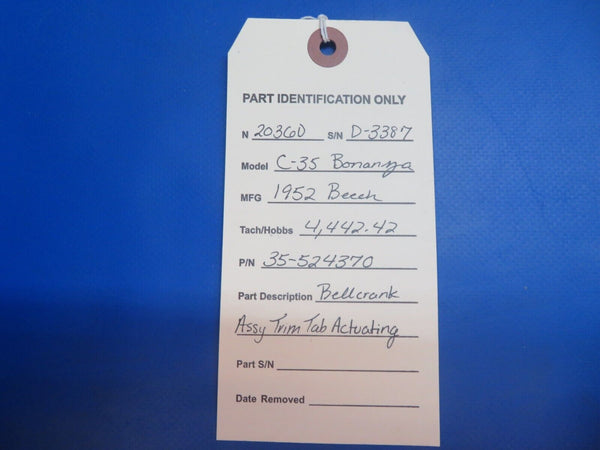 PART IDENTIFICATION ONLY
N 2036D S/N D-3387
Model C-35 Bonanza
MFG 1952 Beech
Tach/Hobbs 4,442.42
P/N 35-524370
Part Description Bellcrank
Assy Trim Tab Actuating
Part S/N
Date Removed